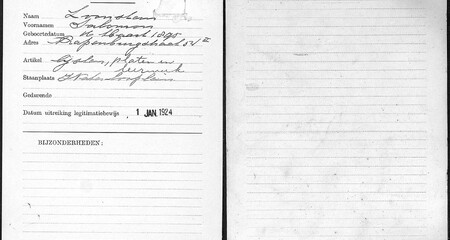 Naam
Voornamen Salomon
Geboortedatum de 16 maart 1895
Adres Rapenburgstraat 54 II
Artikel platen en
Staanplaats Waterlooplein
Gedurende
Datum uitreiking legitimatiebewijs 1 JAN. 1924
BIJZONDERHEDEN: